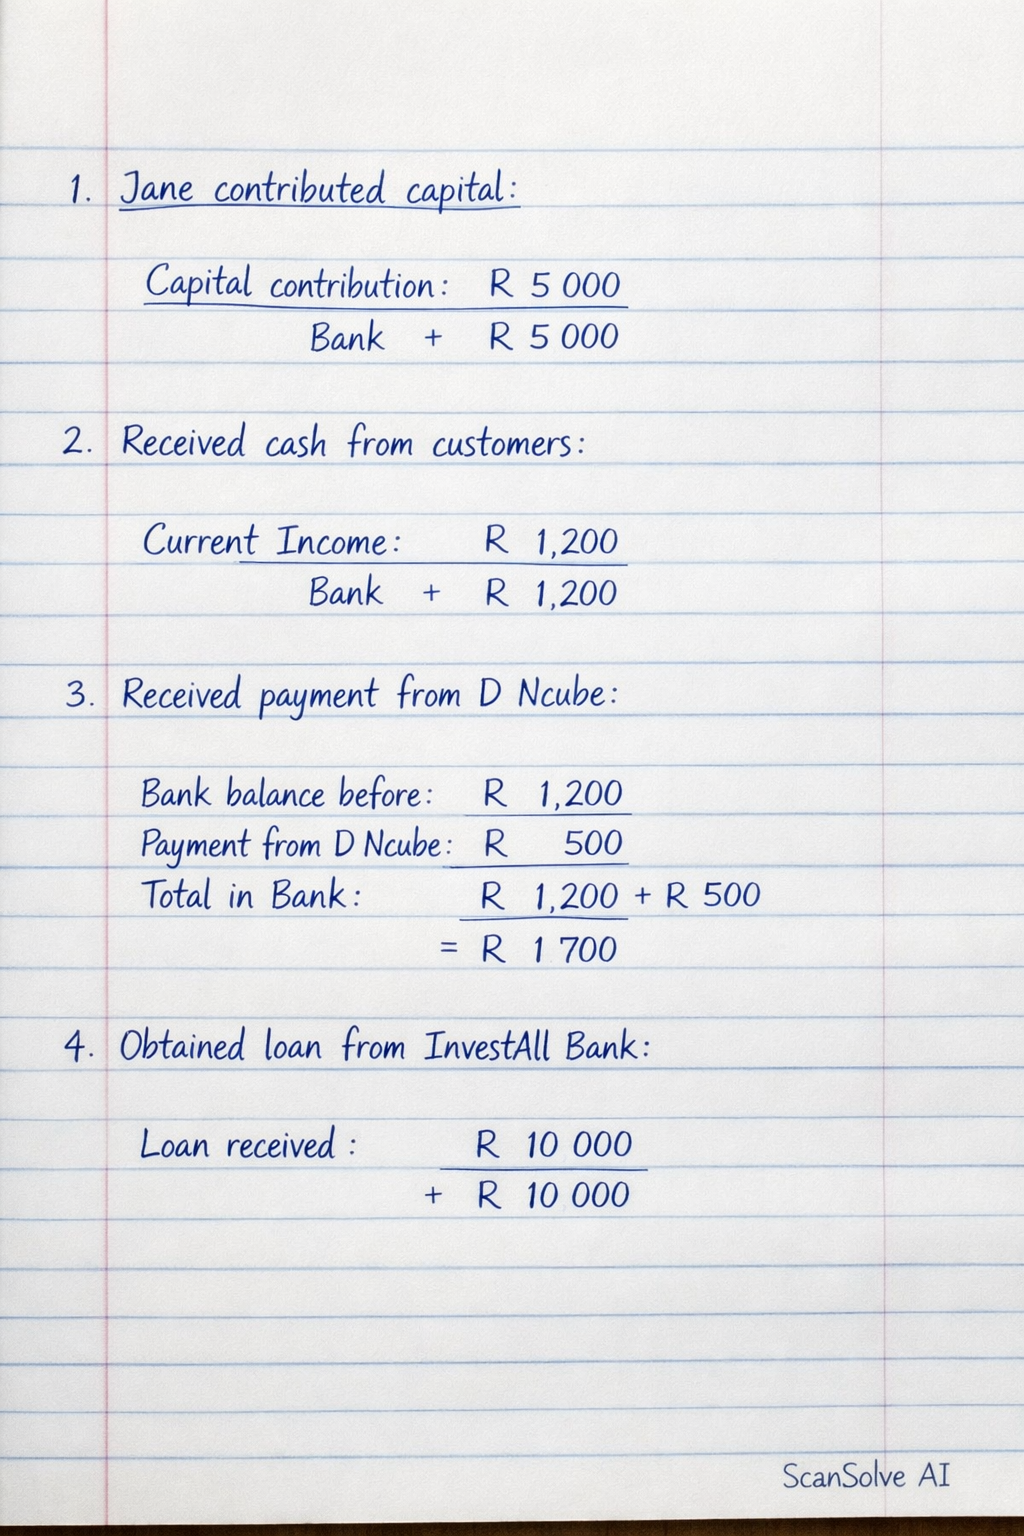 1. Jane contributed capital:
Capital contribution: R 5 000
Bank + R 5 000
2. Received cash from customers:
Current Income: R 1,200
Bank + R 1,200
3. Received payment from D Ncube:
Bank balance before: R 1,200
Payment from D Ncube: R 500
Total in Bank: R 1,200 + R 500
= R 1 700
4. Obtained loan from InvestAll Bank:
Loan received : R 10 000
+ R 10 000
ScanSolve AI